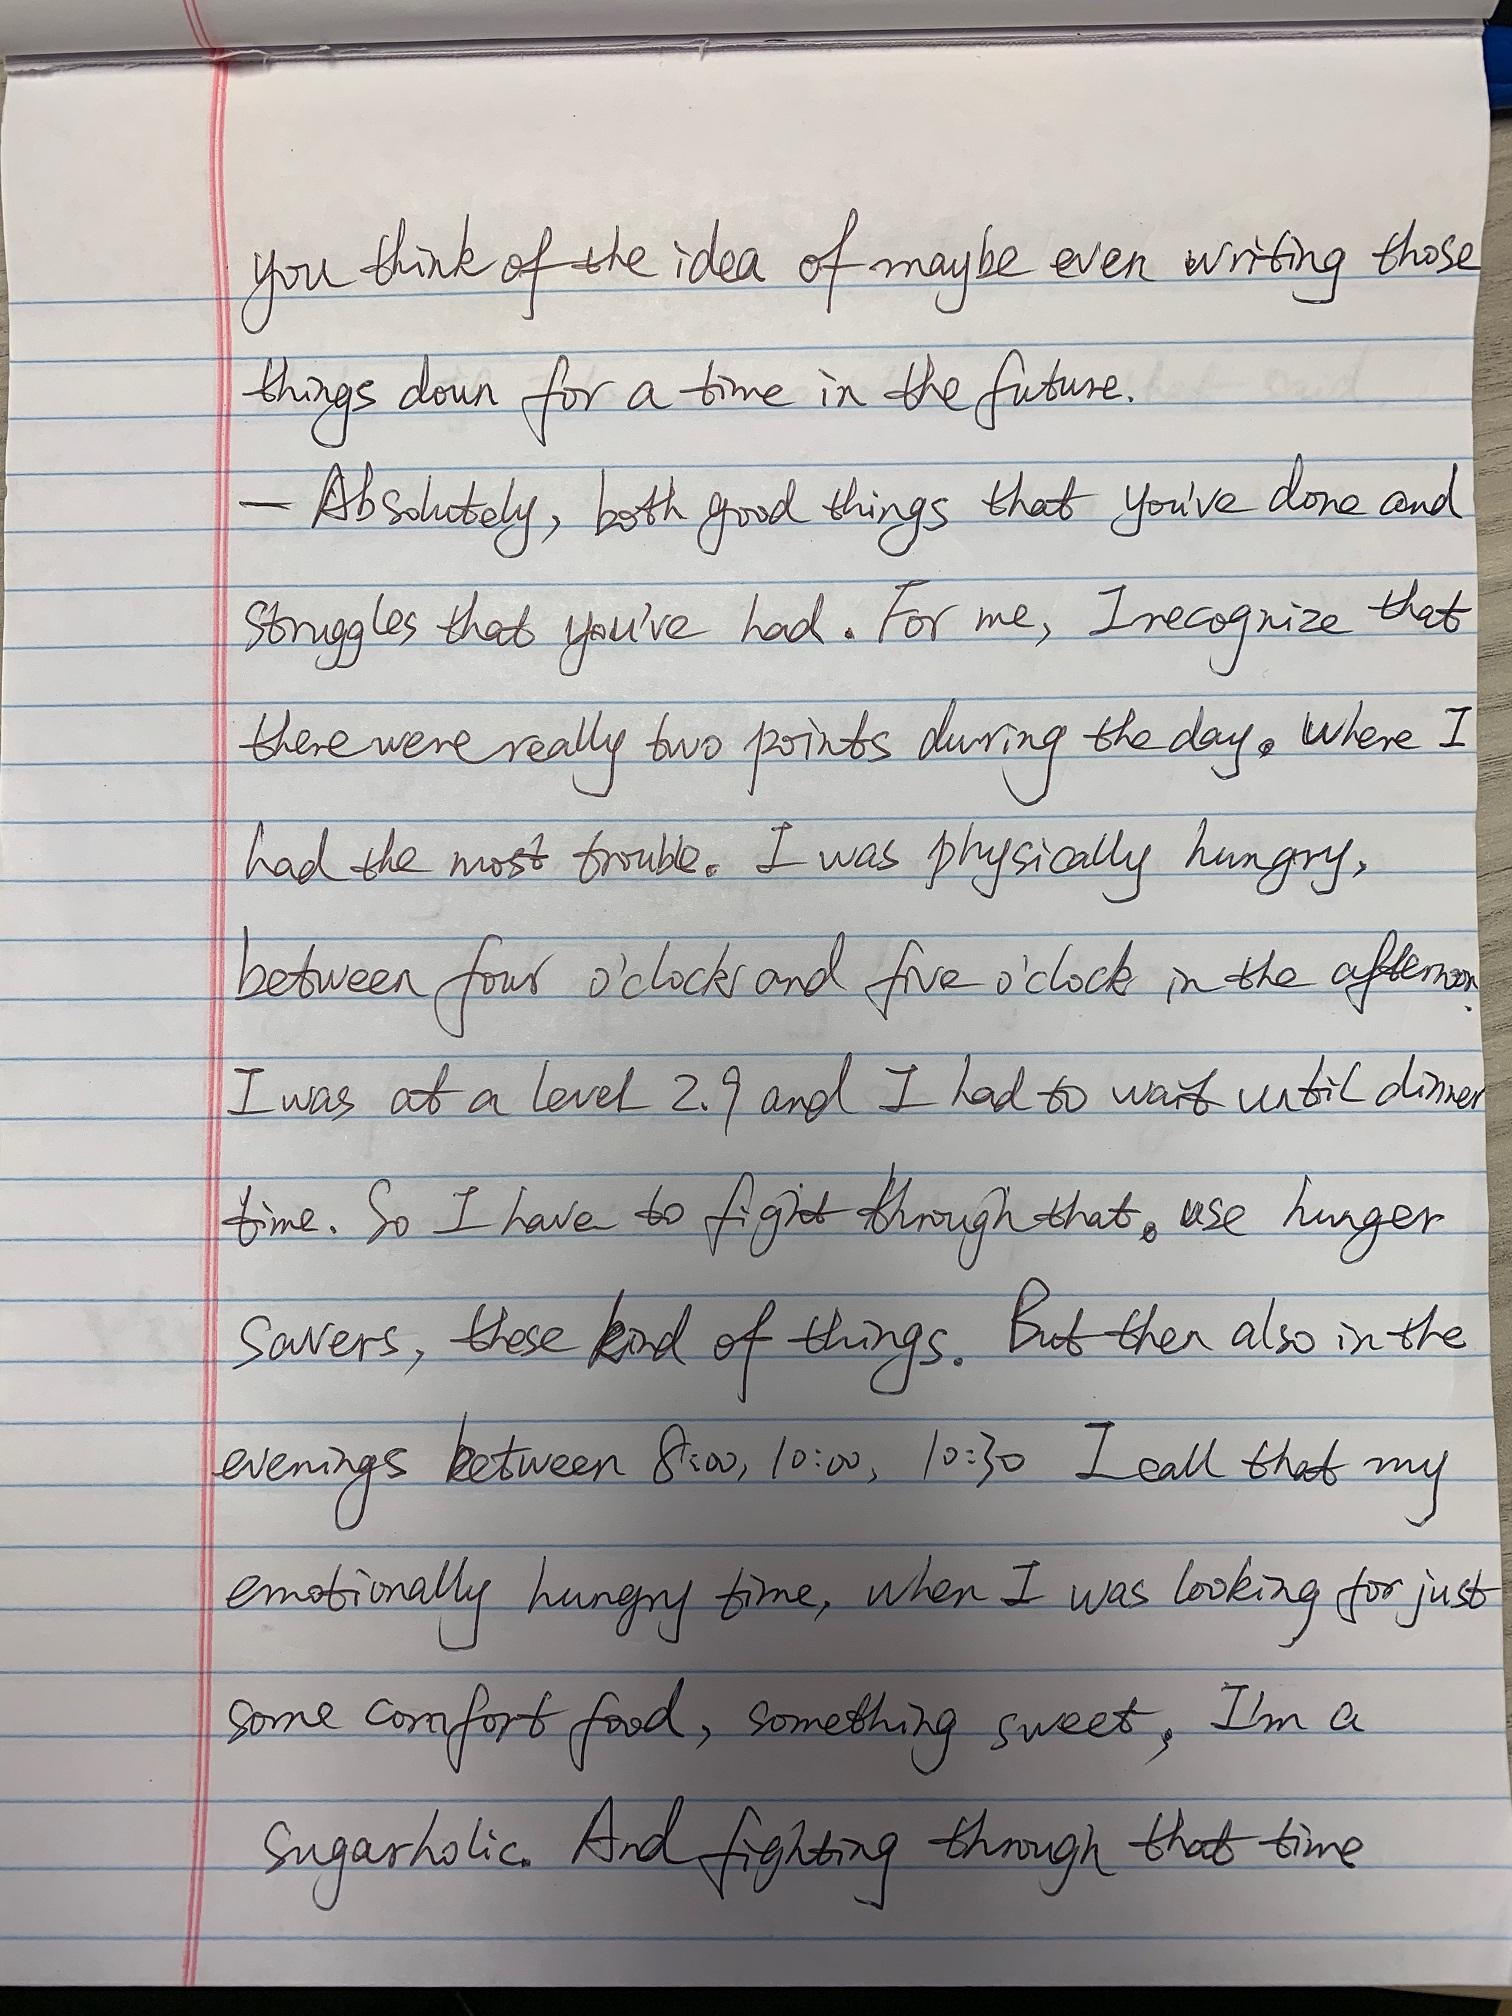 you think of the idea of maybe even writing those
things down for a time in the future.
— Absolutely, both good things that you've done and
struggles that you've had. For me, I recognize that
there were really two points during the day. Where I
had the most trouble. I was physically hungry,
between four o'clock and five o'clock in the afternoon.
I was at a level 2.9 and I had to wait until dinner
time. So I have to fight through that. use hunger
savers, those kind of things. But then also in the
evenings between 8:00, 10:00, 10:30 I call that my
emotionally hungry time, when I was looking for just
some comfort food, something sweet, I'm a
sugarholic. And fighting through that time